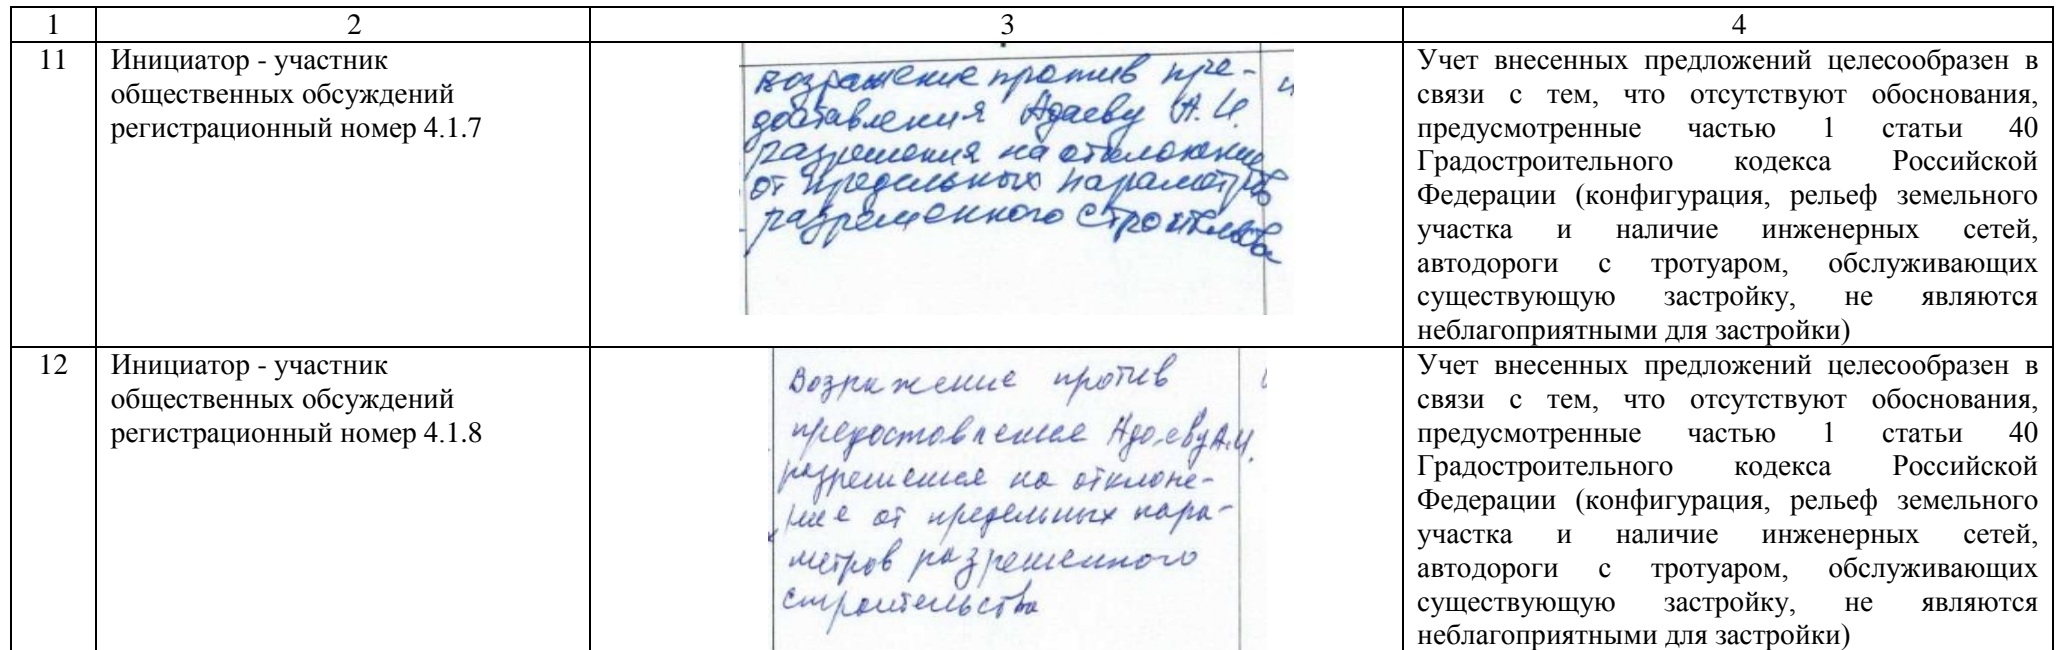 1 2 3 4
11
Инициатор - участник
общественных обсуждений
регистрационный номер 4.1.7
возражение против пре-
доставления Адаеву А.И.
разрешения на отклонение
от предельных параметров
разрешенного строительства
Учет внесенных предложений целесообразен в
связи с тем, что отсутствуют обоснования,
предусмотренные частью 1 статьи 40
Градостроительного кодекса Российской
Федерации (конфигурация, рельеф земельного
участка и наличие инженерных сетей,
автодороги с тротуаром, обслуживающих
существующую застройку, не являются
неблагоприятными для застройки)
12
Инициатор - участник
общественных обсуждений
регистрационный номер 4.1.8
Возражение против
предоставления Адаеву А.И.
разрешения на отклоне-
ние от предельных пара-
метров разрешенного
строительства
Учет внесенных предложений целесообразен в
связи с тем, что отсутствуют обоснования,
предусмотренные частью 1 статьи 40
Градостроительного кодекса Российской
Федерации (конфигурация, рельеф земельного
участка и наличие инженерных сетей,
автодороги с тротуаром, обслуживающих
существующую застройку, не являются
неблагоприятными для застройки)